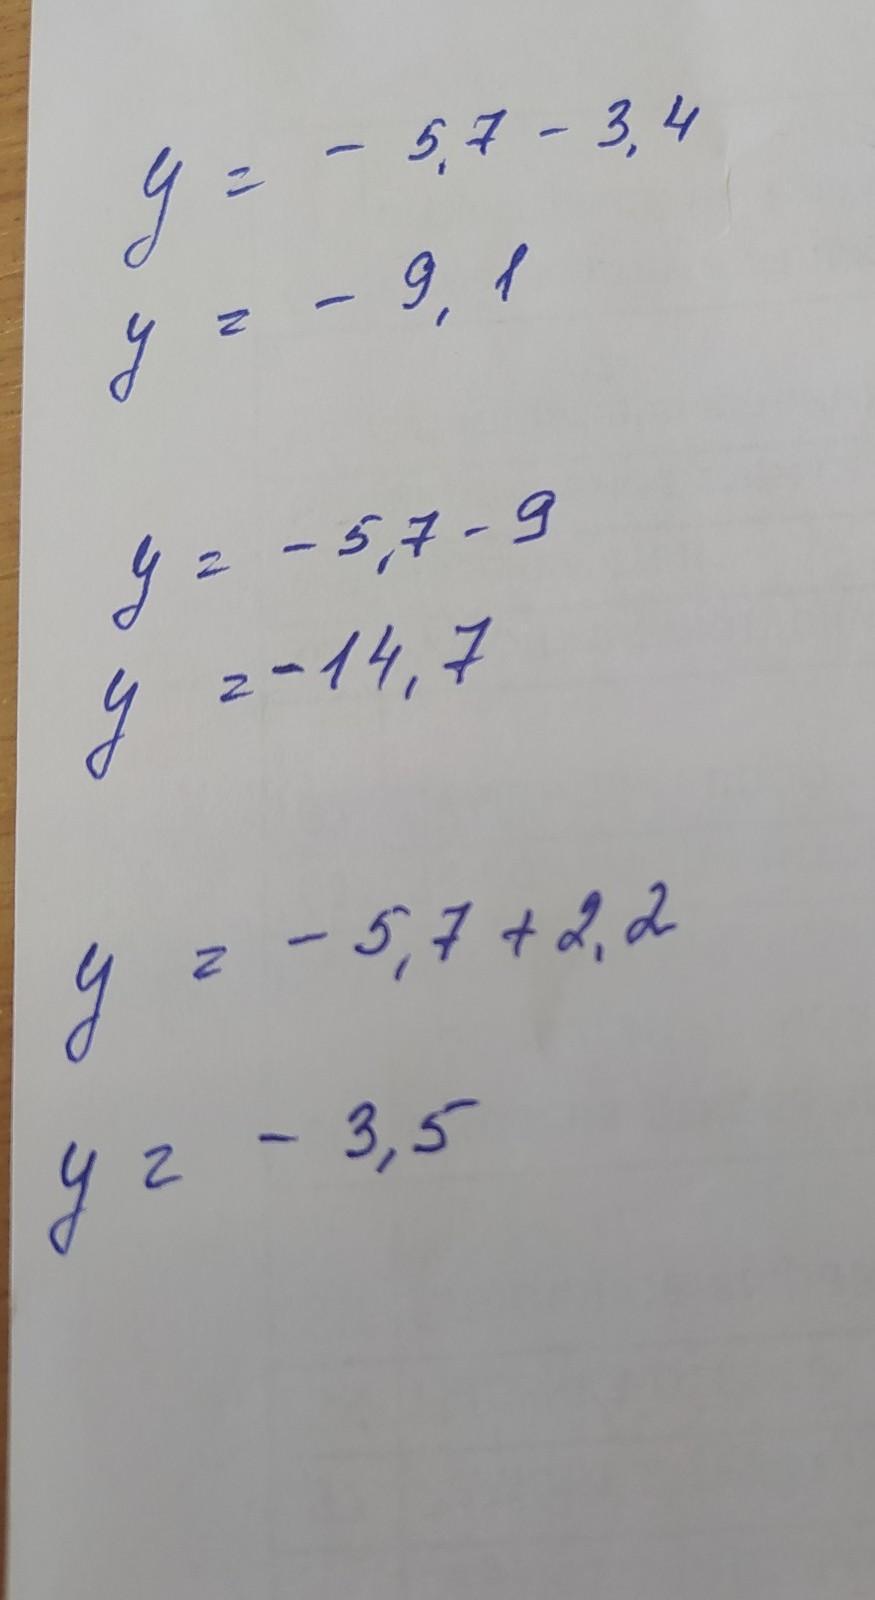 y = - 5,7 - 3,4
y = - 9,1
y = - 5,7 - 9
y = -14,7
y = - 5,7 + 2,2
y = - 3,5